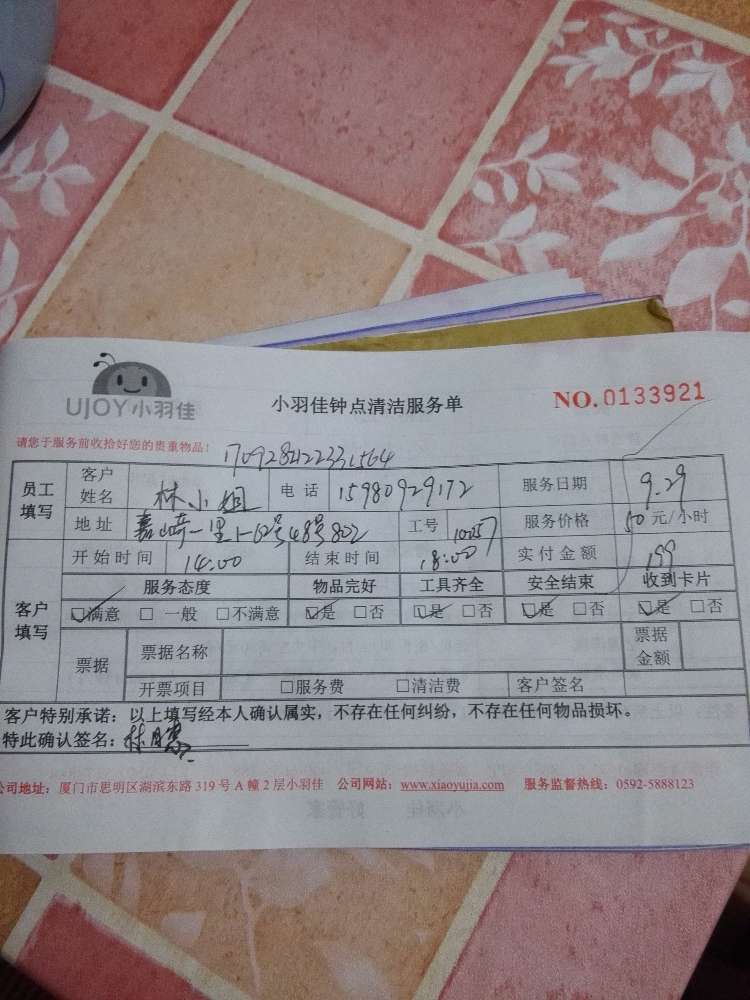 UJOY小羽佳
小羽佳钟点清洁服务单
NO. 0133921
请您于服务前收拾好您的贵重物品!
员工填写
客户姓名 林小姐 电话 15980929172 服务日期 9.29
地址 嘉 一里 48号802 工号 10057 服务价格 50元/小时
客户填写
开始时间 14:00 结束时间 18:00 实付金额 199
服务态度 物品完好 工具齐全 安全结束 收到卡片
☑满意 □一般 □不满意 ☑是 □否 ☑是 □否 ☑是 □否 ☑是 □否
票据 票据名称 票据金额
开票项目 □服务费 □清洁费 客户签名
客户特别承诺:以上填写经本人确认属实,不存在任何纠纷,不存在任何物品损坏。
特此确认签名:林
公司地址:厦门市思明区湖滨东路319号A幢2层小羽佳 公司网站:www.xiaoyujia.com 服务监督热线:0592-5888123